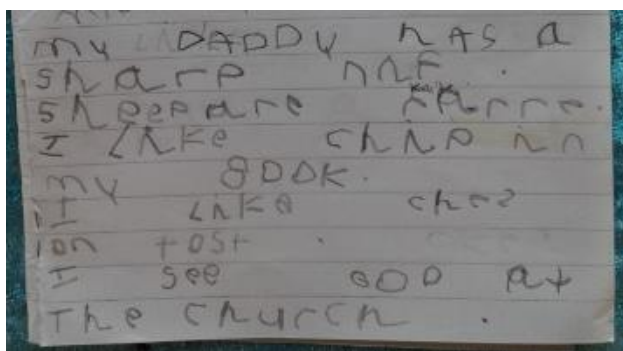 my DADDY hAS a
sharp
sheep are
I Like chip in
my BOOK.
I Like
on tost .
I see GOD at
The church .